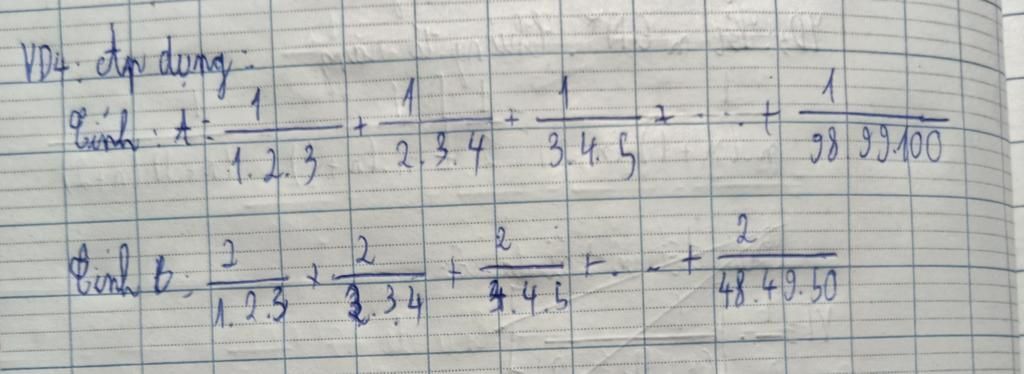 VD4: Áp dụng:
Tính: A = 1/1.2.3 + 1/2.3.4 + 1/3.4.5 + ... + 1/98.99.100
Tính B: 2/1.2.3 + 2/2.3.4 + 2/3.4.5 + ... + 2/48.49.50